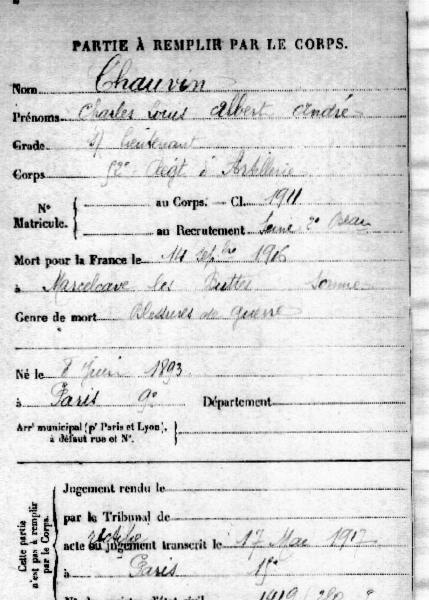 PARTIE À REMPLIR PAR LE CORPS.
Nom Chauvin
Prénoms Charles Louis Albert André
Grade S/ Lieutenant
Corps 52e Régt d'Artillerie
N° Matricule. { au Corps. — Cl. 1911
au Recrutement Seine 2e Bureau
Mort pour la France le 14 Sepbre 1916
à Marcelcave les Buttes Somme
Genre de mort Blessures de guerre
Né le 8 Juin 1893
à Paris 9e Département
Arrt municipal (pr Paris et Lyon), à défaut rue et N°.
Cette partie n'est pas à remplir par le Corps.
Jugement rendu le
par le Tribunal de
acte ou jugement transcrit le 17 Mai 1917
à Paris 15e